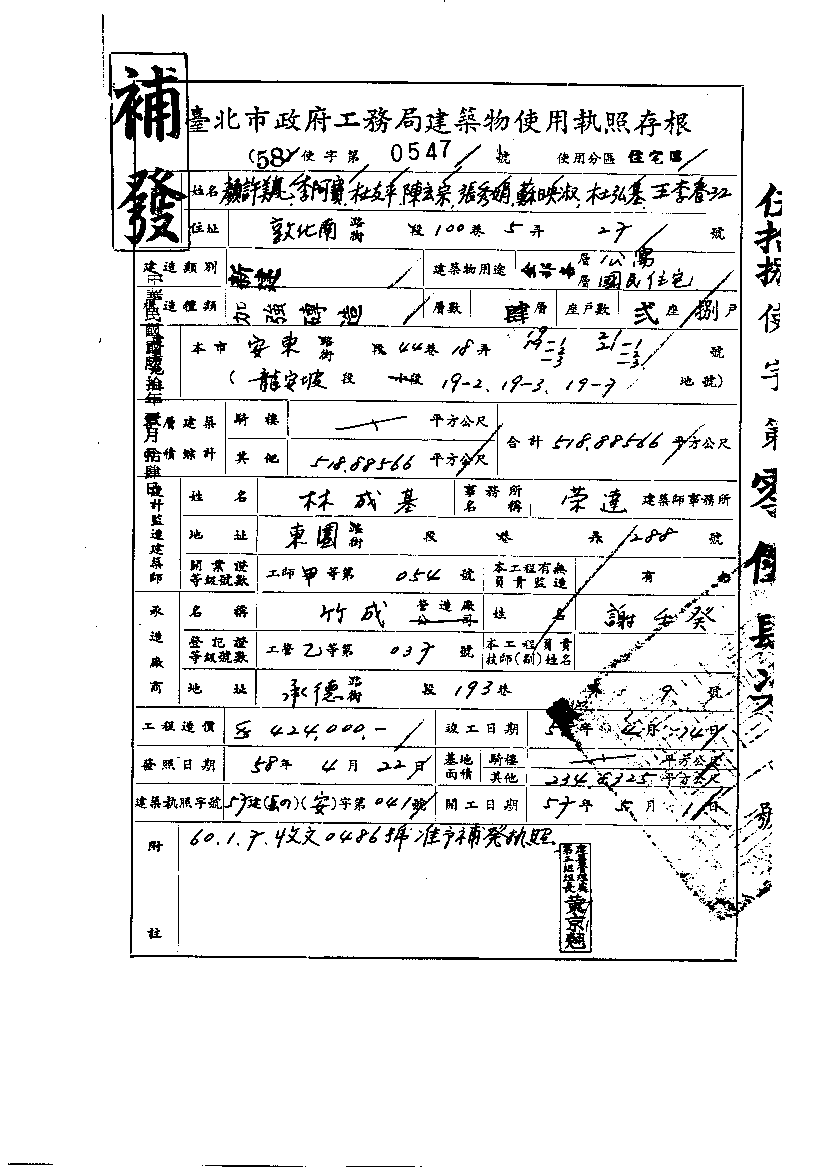 補發
臺北市政府工務局建築物使用執照存根
(58)使字第 0547 號 使用分區 住宅區
姓名 顏許美鳳 李阿寶 杜友平 陳玄宗 張秀娟 蘇映淑 杜弘基 王李春江
住址 敦化南 路街 段 100巷 5弄 27 號
建造類別 新建 建築物用途 層公寓 層國民住宅
構造種類 加強磚造 層數 肆層 座戶數 貳座捌戶
本市 安東 路街 段 44巷 18弄 19-1 -2 -3 21-1 -2 -3 號
(龍安坡段 小段 19-2. 19-3. 19-7 地號)
層建築面積總計 騎樓 平方公尺 合計 518.88566 平方公尺
其他 518.88566 平方公尺
設計監造建築師 姓名 林成基 事務所名稱 榮達 建築師事務所
地址 東園 路街 段 巷 弄 288 號
開業證等級號數 工師甲等第 054 號 本工程有無負責監造 有
承造廠商 名稱 竹成 營造廠公司 姓名 謝壬癸
登記證等級號數 工營乙等第 037 號 本工程負責技師(副)姓名
地址 承德 路街 段 193巷 弄 9 號
工程造價 424,000.- 竣工日期 年 月 14日
發照日期 58年 4月 22日 基地面積 騎樓 平方公尺
其他 平方公尺
建築執照字號 57建()(安)字第041號 開工日期 57年 5月 1日
附註 60.1.7.收文04865號准予補發執照
建築管理處第二組組長 黃京
中華民國陸拾年壹月拾肆日
伍拾捌使字第零伍肆 號